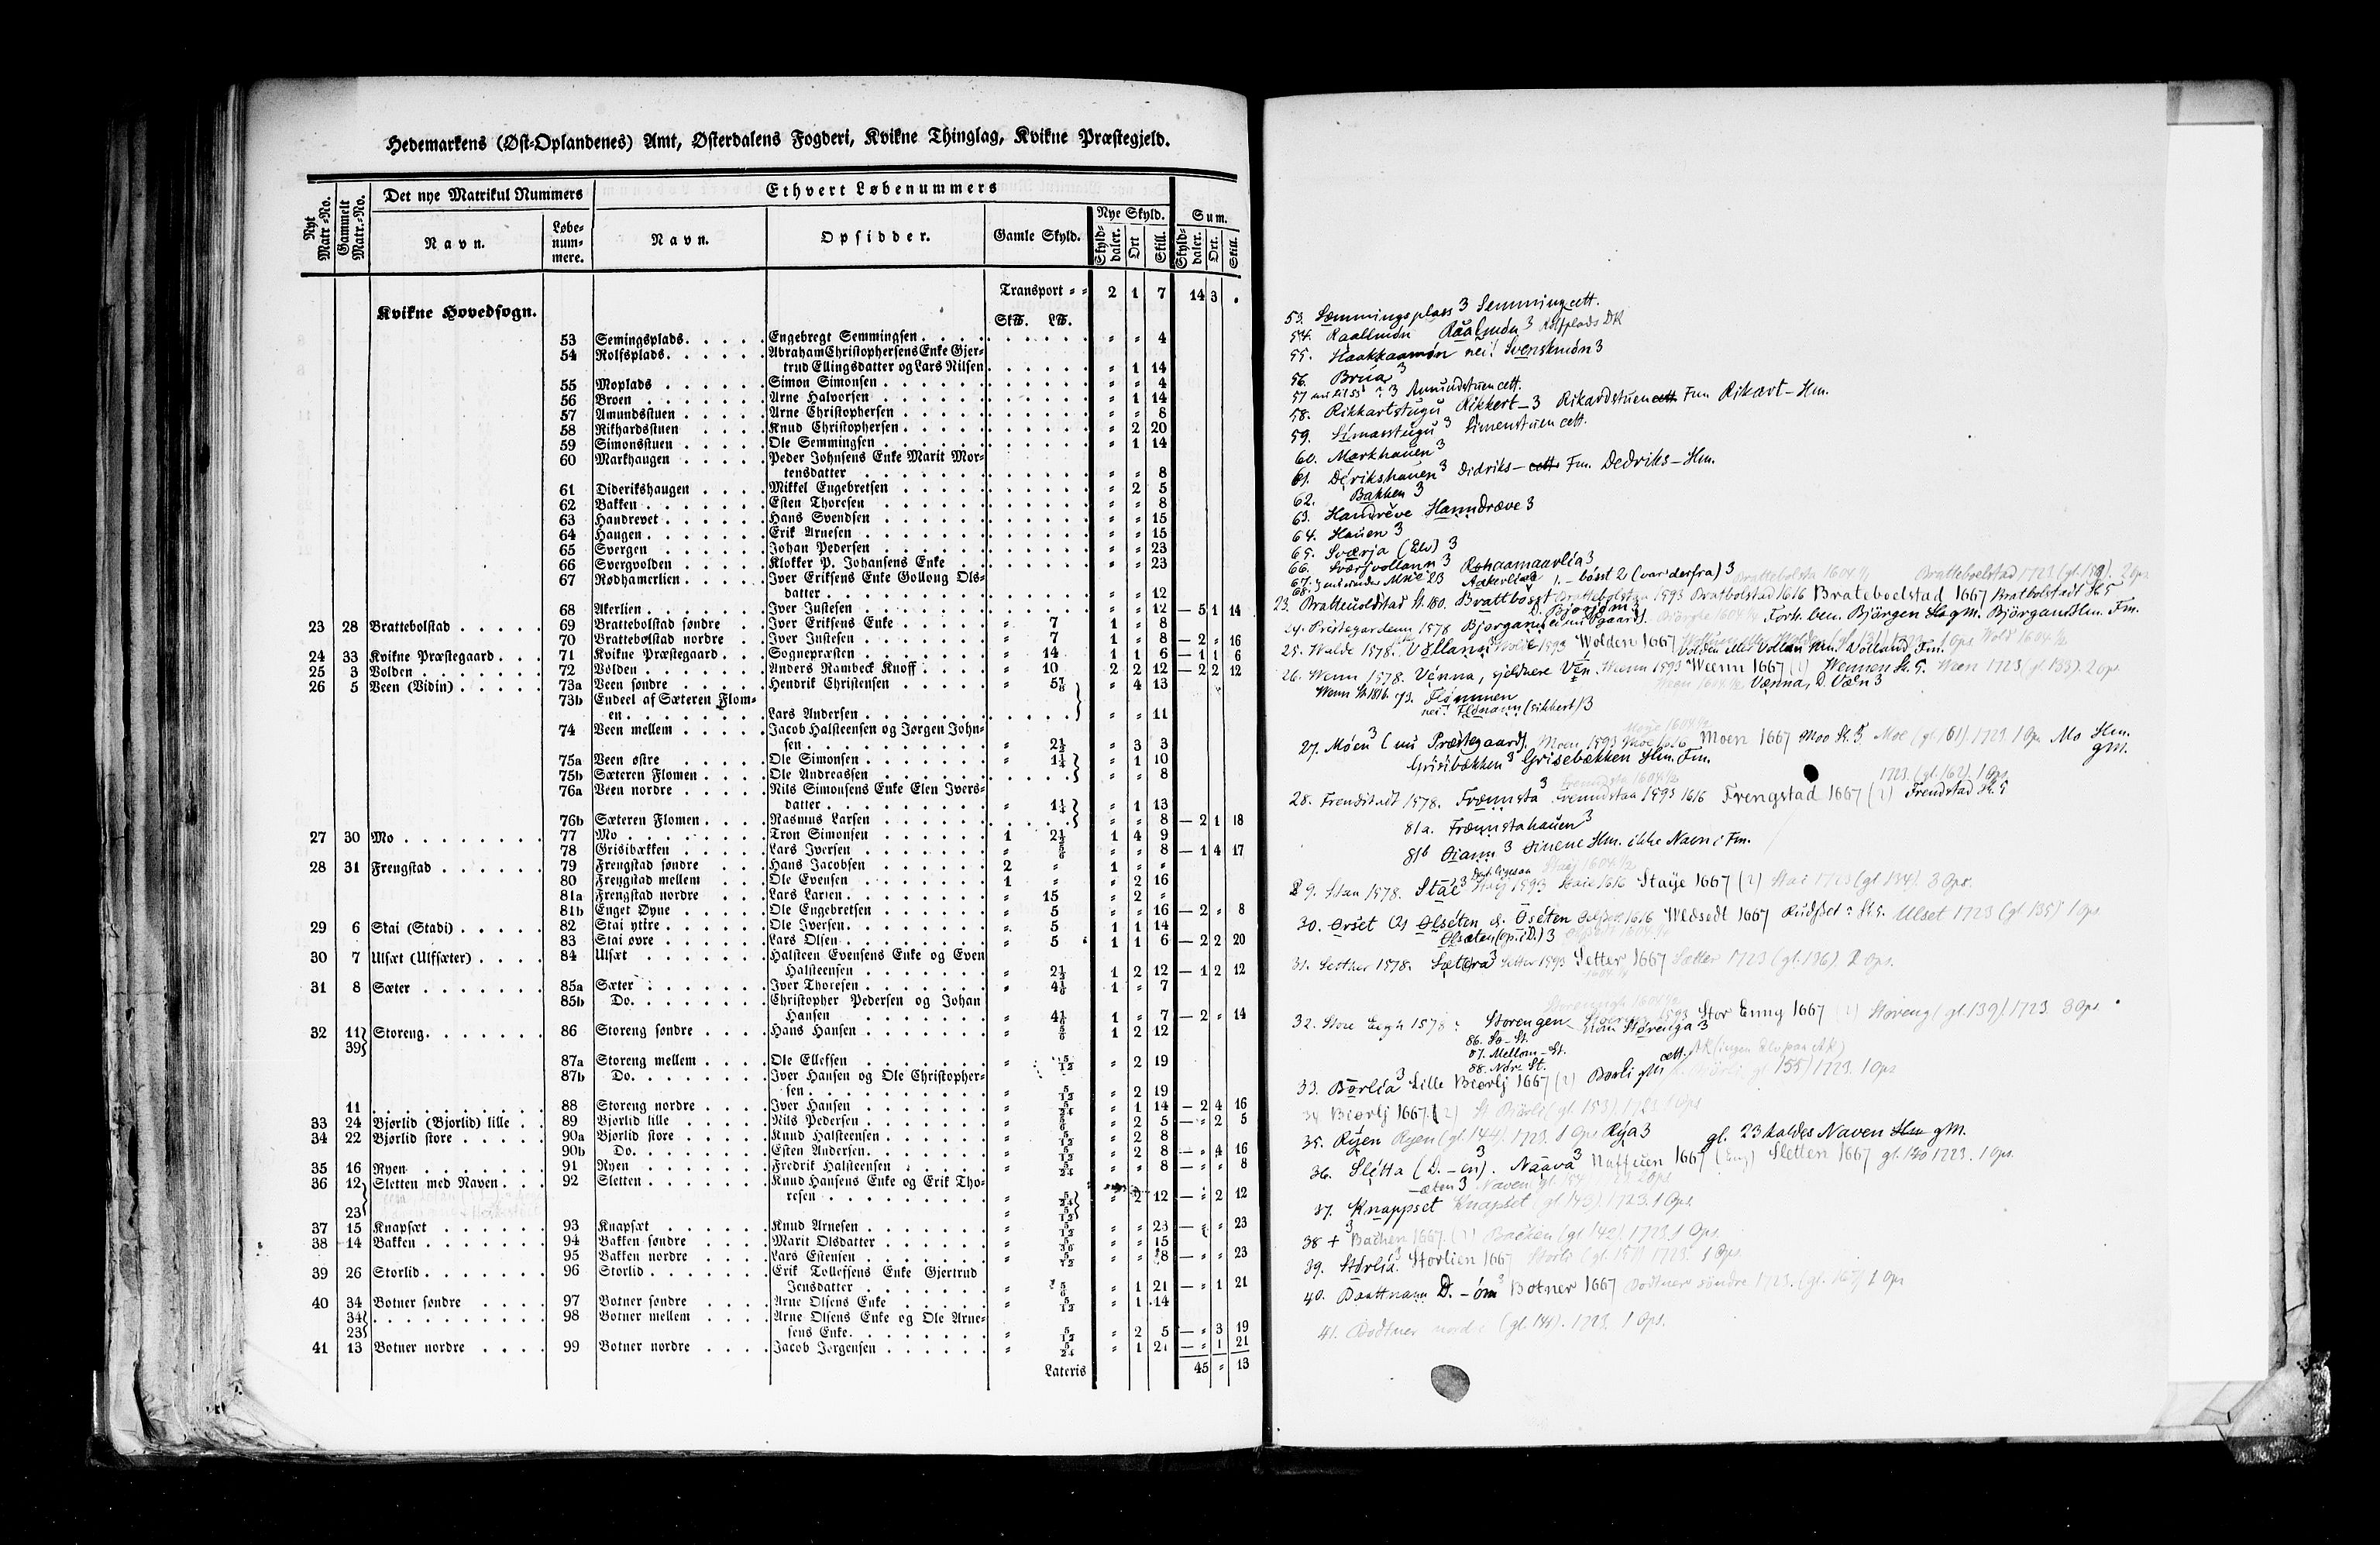 Hedemarkens (Øst-Oplandenes) Amt, Østerdalens Fogderi, Kvikne Thinglag, Kvikne Præstegjeld.
Nyt Matr.-No. Gammelt Matr.-No. Det nye Matrikul Nummers Ethvert Løbenummers
Navn. Løbe-num-mere. Navn. Opsidder. Gamle Skyld. Nye Skyld. Sum.
Skyld-daler. Ort Skill. Skyld-daler. Ort. Skill.
Transport = = 2 1 7 14 3 .
Kvikne Hovedsogn.
53 Semingsplads. Engebregt Semmingsen = = 4
54 Rolfsplads. Abraham Christophersens Enke Gjer-
trud Ellingsdatter og Lars Nilsen = 1 14
55 Moplads Simon Simonsen = = 4
56 Broen Arne Halvorsen = 1 14
57 Amundsstuen Arne Christophersen = = 8
58 Rikhardsstuen Knud Christophersen = 2 20
59 Simonsstuen Ole Semmingsen = 1 14
60 Markhaugen Peder Johnsens Enke Marit Mor-
tensdatter = = 8
61 Diderikshaugen Mikkel Engebretsen = 2 5
62 Bakken Esten Thoresen = = 8
63 Handrevet Hans Svendsen = = 15
64 Haugen Erik Arnesen = = 15
65 Svergen Johan Pedersen = = 23
66 Svergvolden Klokker P. Johansens Enke = = 23
67 Rødhamerlien Iver Eriksens Enke Gollong Ols-
datter = = 12
68 Akerlien Iver Justesen = = 12 — 5 1 14
23 28 Brattebolstad 69 Brattebolstad søndre Iver Eriksens Enke = 7 1 = 8
70 Brattebolstad nordre Iver Justesen = 7 1 = 8 — 2 = 16
24 33 Kvikne Præstegaard 71 Kvikne Præstegaard Sognepræsten = 14 1 1 6 — 1 1 6
25 3 Volden 72 Volden Anders Rambeck Knoff = 10 2 2 12 — 2 2 12
26 5 Veen (Vidin) 73a Veen søndre Hendrik Christensen = 4 13
73b Endeel af Sæteren Flom-
en Lars Andersen = = 11
74 Veen mellem Jacob Halsteensen og Jørgen John-
sen = 2½ = 3 3
75a Veen østre Ole Simonsen = 1¼ = 1 10
75b Sæteren Flomen Ole Andreassen = = 8
76a Veen nordre Nils Simonsens Enke Elen Ivers-
datter = 1¼ = 1 13
76b Sæteren Flomen Rasmus Larsen = = 8 — 2 1 18
27 30 Mo 77 Mo Tron Simonsen 1 2½ 1 4 9
78 Grisibækken Lars Iversen = ⅚ = = 8 — 1 4 17
28 31 Frengstad 79 Frengstad søndre Hans Jacobsen 2 = 1 = =
80 Frengstad mellem Ole Evensen 1 = = 2 16
81a Frengstad nordre Lars Larsen = 15 = 2 =
81b Enget Øyne Ole Engebretsen = 5 = = 16 — 2 = 8
29 6 Stai (Stadi) 82 Stai yttre Ole Iversen = 5 1 1 14
83 Stai øvre Lars Olsen = 5 1 1 6 — 2 2 20
30 7 Ulsæt (Ulfsæter) 84 Ulsæt Halsteen Evensens Enke og Even
Halsteensen = 2½ 1 2 12 — 1 2 12
31 8 Sæter 85a Sæter Iver Thoresen = 4⅙ 1 = 7
85b Do. Christopher Pedersen og Johan
Hansen = 4⅙ 1 = 7 — 2 = 14
32 11 39 Storeng 86 Storeng søndre Hans Hansen = ⅚ 1 2 12
87a Storeng mellem Ole Ellefsen 5/12 = 2 19
87b Do. Iver Hansen og Ole Christopher-
sen = 5/12 = 2 19
11 88 Storeng nordre Iver Hansen = 5/24 = 1 14 — 2 4 16
33 24 Bjørlid (Bjorlid) lille 89 Bjorlid lille Nils Pedersen = ⅚ = 2 5 — = 2 5
34 22 Bjørlid store 90a Bjorlid store Knud Halsteensen = 5/12 = 2 8
90b Do. Esten Andersen = 5/12 = 2 8 — = 4 16
35 16 Ryen 91 Ryen Fredrik Halsteensen = 5/24 = = 8 — = = 8
36 12 Sletten med Naven 92 Sletten Knud Hansens Enke og Erik Tho-
resen = 5/24 = 2 12 — = 2 12
23 = 5/12
37 15 Knapsæt 93 Knapsæt Knud Arnesen = 5/12 = = 23 — = = 23
38 14 Bakken 94 Bakken søndre Marit Olsdatter = 5/36 = = 15
95 Bakken nordre Lars Estensen = 5/72 = = 8 — = = 23
39 26 Storlid 96 Storlid Erik Tollefsens Enke Gjertrud
Jensdatter = ⅚ = 1 21 — = 1 21
40 34 Botner søndre 97 Botner søndre Arne Olsens Enke = 5/12 = 1 14
34 23 98 Botner mellem Arne Olsens Enke og Ole Arne-
sens Enke = 5/12 = 2 5 — = 3 19
41 13 Botner nordre 99 Botner nordre Jacob Jørgensen = 5/24 = 1 21 — = 1 21
Lateris 45 = 13
53. Sæmmingsplass 3 Semming cett.
54. Raallmón Raalmón 3 Rolfplads DK
55. Haakkaamón nei! Svenskmón 3
56. Brúa 3
57 3 Amundstuen cett.
58. Rikkartstugu Rikkert-3 Rikardstuen cett. Fm. Rikart-Hm.
59. Simasstugu 3 Simenstuen cett.
60. Markhauen 3
61. Dérikshauen 3 Didriks- cett. Fm. Dedriks-Hm.
62. Bakken 3
63. Handréve Hanndræve 3
64. Hauen 3
65. Sværja (Elv) 3
66. Sværjvollann 3
67. Rohaamaarlia 3
68. Aakerlia
23. Bratteuoldstad St. 180. Brattbost Bratbolstad 1616 Brateboelstad 1667 Bratbolstadt St. 5
24. Prestegardenn 1578 Bjørgann Fork. ben. Bjørgen gM. Bjørgan Hm. Fm.
25. Walde 1578. Vollann Wolden 1667 Volden eller Vollan Hm. Volland Fm.
26. Wenn 1578. Vénna, sjeldnere Vén. Wenn 1593 Weenn 1667 (2) Wennen St. 5. Ween 1723 (gl. 133). 2 Ops
Wenn St. 1816. 73. Flommen Vænna, D. Væn 3
nei! Flómann (sikkert) 3
27. Móen 3 (nu Præstegaard). Moen 1593 Moe 1616 Moen 1667 Moo St. 5. Moe (gl. 161) 1723. 1 Ops Mo Hm. gM.
Grisibækken 3 Grisebækken Hm. Fm.
1723. (gl. 162). 1 Ops
28. Frendstadt 1578. Frænnsta 3 Fremdstaa 1593 1616 Frengstad 1667 (2) Frendstad St. 5
81a. Frænnstahauen 3
81b Oiann 3 Oinene Hm. ikke Navn i Fm.
29. Staa 1578. Stáe 3 Staij 1593 Staie 1616 Staÿe 1667 (2) Stai 1723 (gl. 134). 3 Ops.
30. Ørset (2) Ølséten d. Øséten Wldsedt 1667 Ulset 1723 (gl. 135) 1 Ops
Ølsæten (op. i D.) 3
31. Setther 1578. Sætera 3 Setter 1593 Setter 1667 Sætter 1723 (gl. 136) 2 Ops.
32. Store Eegh 1578: Storengen Stor Enng 1667 (2) Storeng (gl. 139) 1723. 3 Ops.
86. Sø-St.
87. Mellom-St.
88. Nór-St.
33. Børlia 3 Lille Biørlj 1667 (2) Børli gM
34 Biørlj 1667. (2) St Biörli (gl. 153). 1723. 1 Ops
35. Rÿen Ryen (gl. 144). 1723. 1 Ops Rÿa 3 gl. 23 kaldes Naven Hm gM.
36. Slétta (D. -en) 3. Naava 3 Naffuen 1667 (Eng) Sletten 1667 gl. 140 1723. 1 Ops.
37. Knappset -æten 3 Knapset (gl. 143). 1723. 1 Ops.
38 + Bachen 1667. (2) Bachen (gl. 142). 1723. 1 Ops.
39. Stórlia 3 Storlien 1667 Storli (gl. 157) 1723. 1 Ops.
40. Baattnann D. -óm 3 Botner 1667 Bodtner søndre 1723. 1 Ops
41. Bodtner nordre (gl. 141). 1723. 1 Ops.